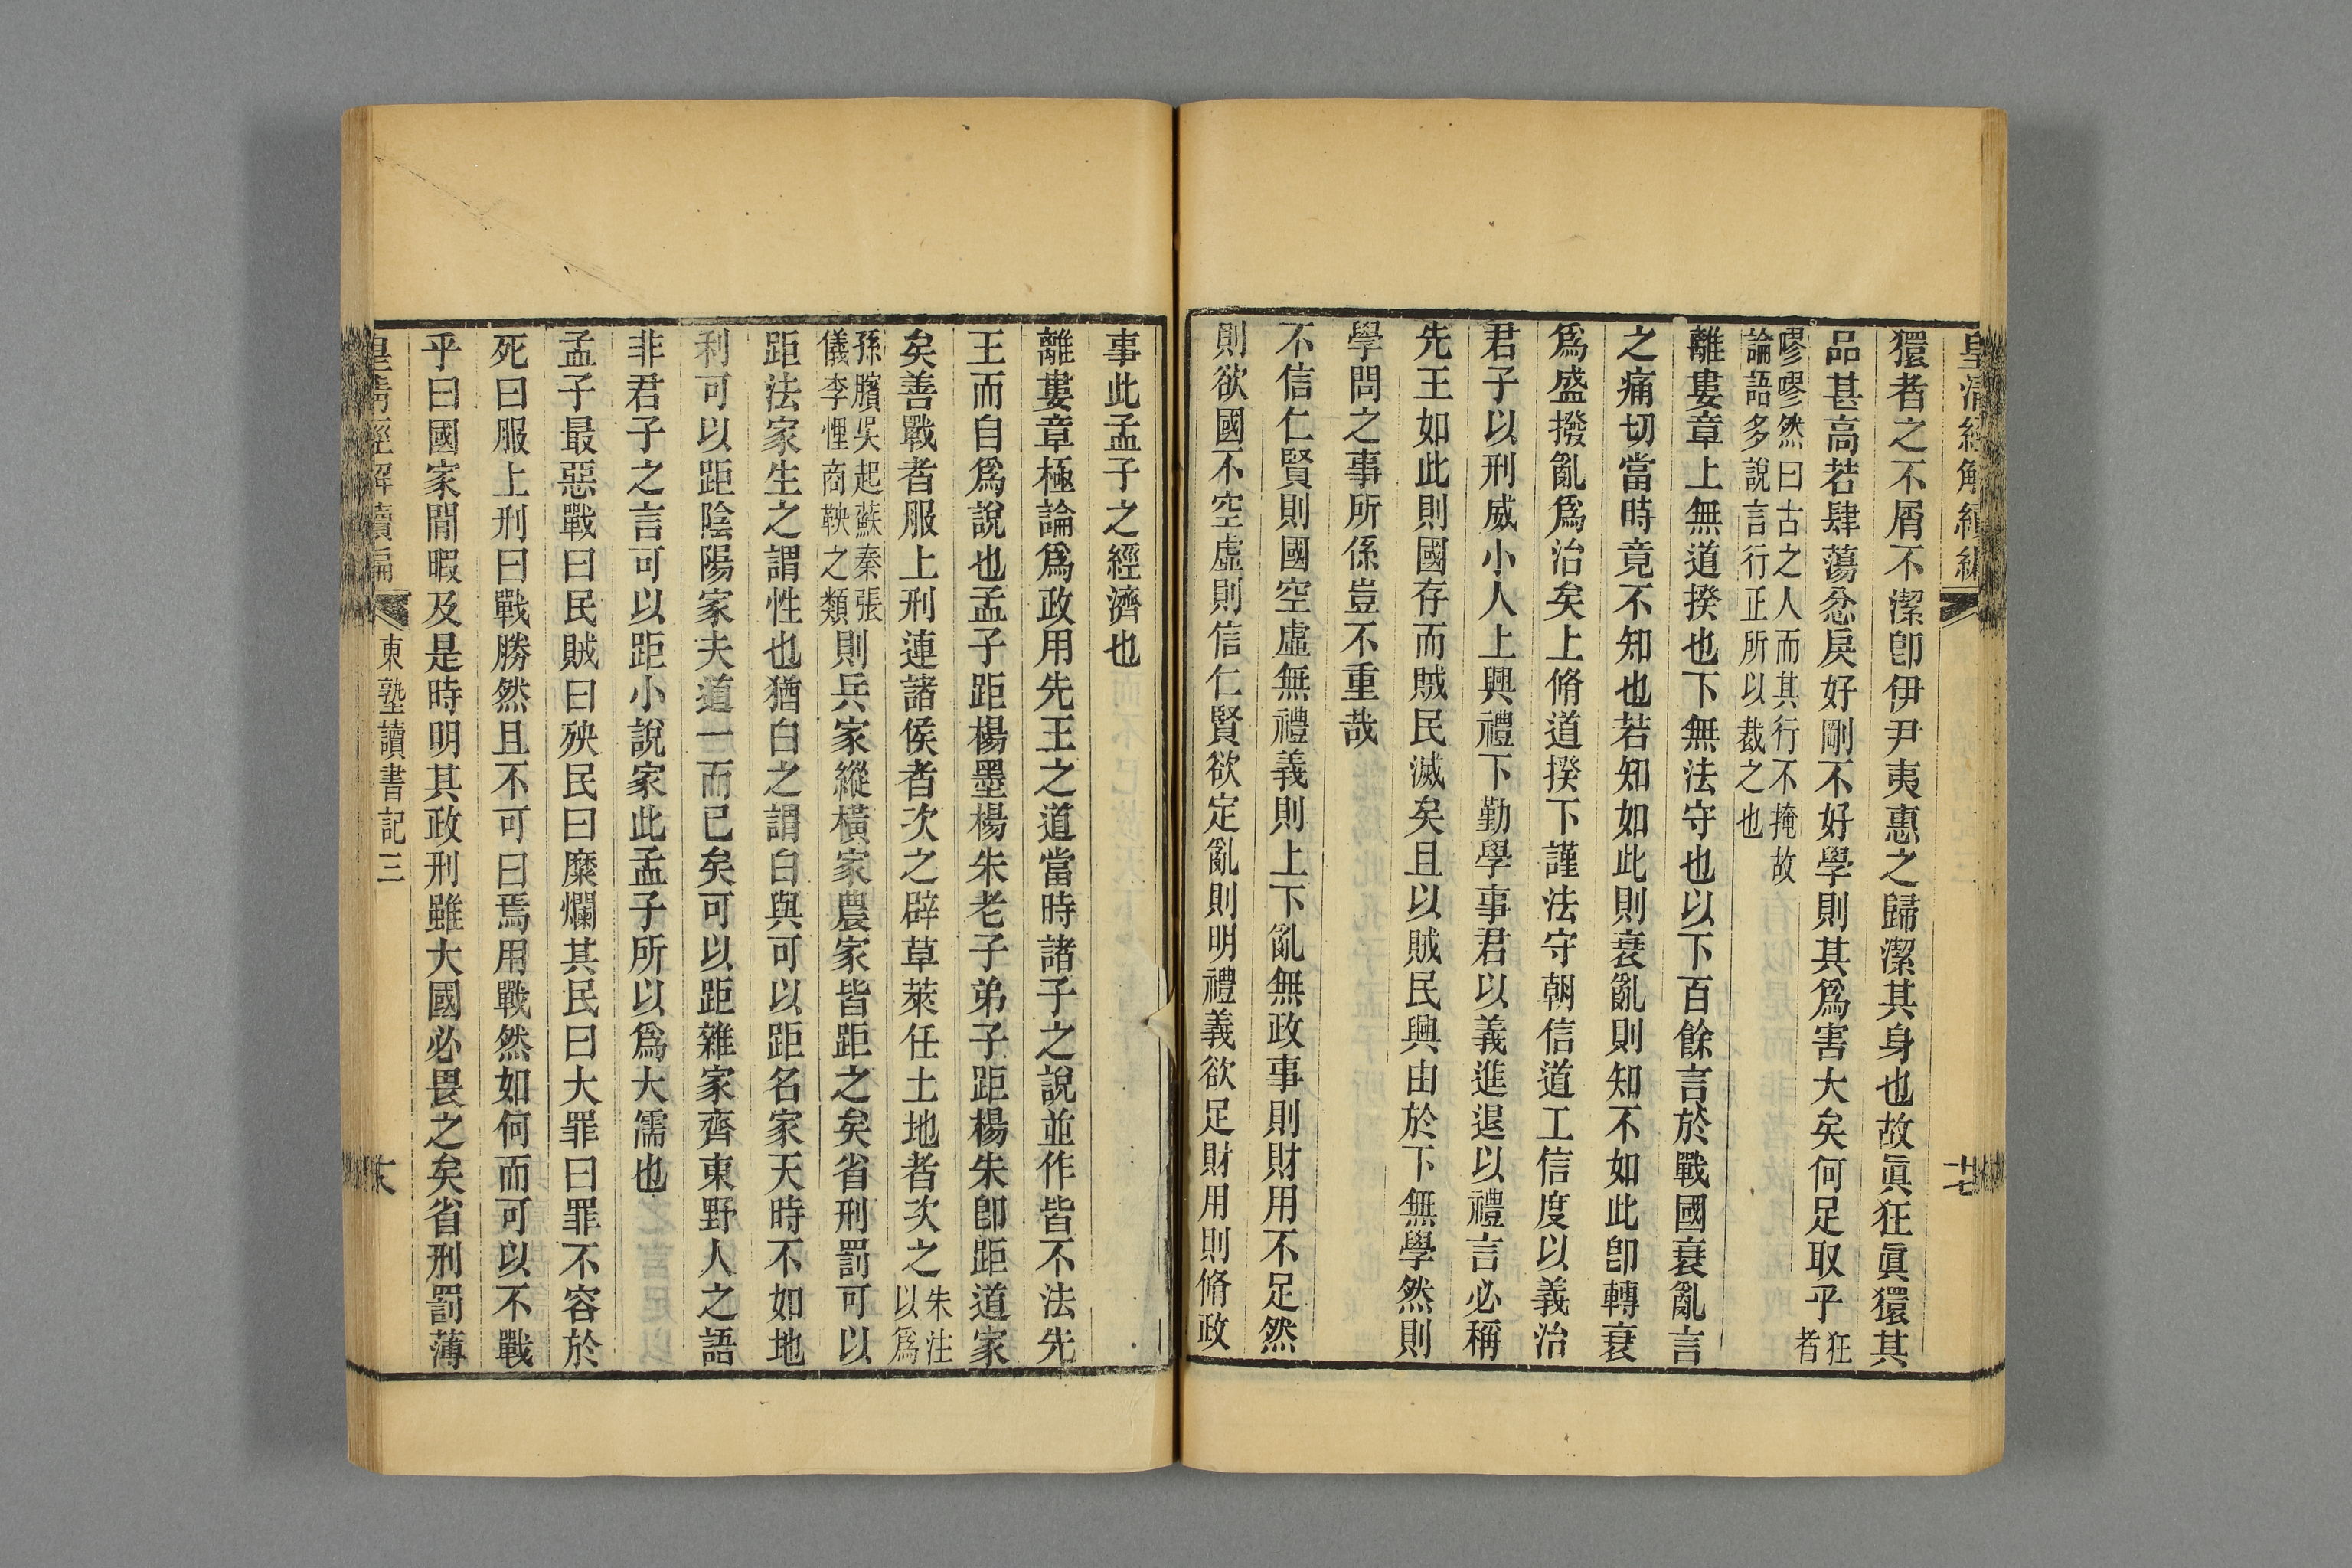 皇清經解續編
十七
獧者之不屑不潔卽伊尹夷惠之歸潔其身也故眞狂眞獧其
品甚高若肆蕩忿戾好剛不好學則其爲害大矣何足取乎狂者
嘐嘐然曰古之人而其行不掩故
論語多說言行正所以裁之也
離婁章上無道揆也下無法守也以下百餘言於戰國衰亂言
之痛切當時竟不知也若知如此則衰亂則知不如此卽轉衰
爲盛撥亂爲治矣上脩道揆下謹法守朝信道工信度以義治
君子以刑威小人上興禮下勤學事君以義進退以禮言必稱
先王如此則國存而賊民滅矣且以賊民興由於下無學然則
學問之事所係豈不重哉
不信仁賢則國空虛無禮義則上下亂無政事則財用不足然
則欲國不空虛則信仁賢欲定亂則明禮義欲足財用則脩政
事此孟子之經濟也
離婁章極論爲政用先王之道當時諸子之說並作皆不法先
王而自爲說也孟子距楊墨楊朱老子弟子距楊朱卽距道家
矣善戰者服上刑連諸侯者次之辟草萊任土地者次之朱注以爲
孫臏吳起蘇秦張
儀李悝商鞅之類則兵家縱橫家農家皆距之矣省刑罰可以
距法家生之謂性也猶白之謂白與可以距名家天時不如地
利可以距陰陽家夫道一而已矣可以距雜家齊東野人之語
非君子之言可以距小說家此孟子所以爲大儒也
孟子最惡戰曰民賊曰殃民曰糜爛其民曰大罪曰罪不容於
死曰服上刑曰戰勝然且不可曰焉用戰然如何而可以不戰
乎曰國家閒暇及是時明其政刑雖大國必畏之矣省刑罰薄
皇清經解續編
東塾讀書記三